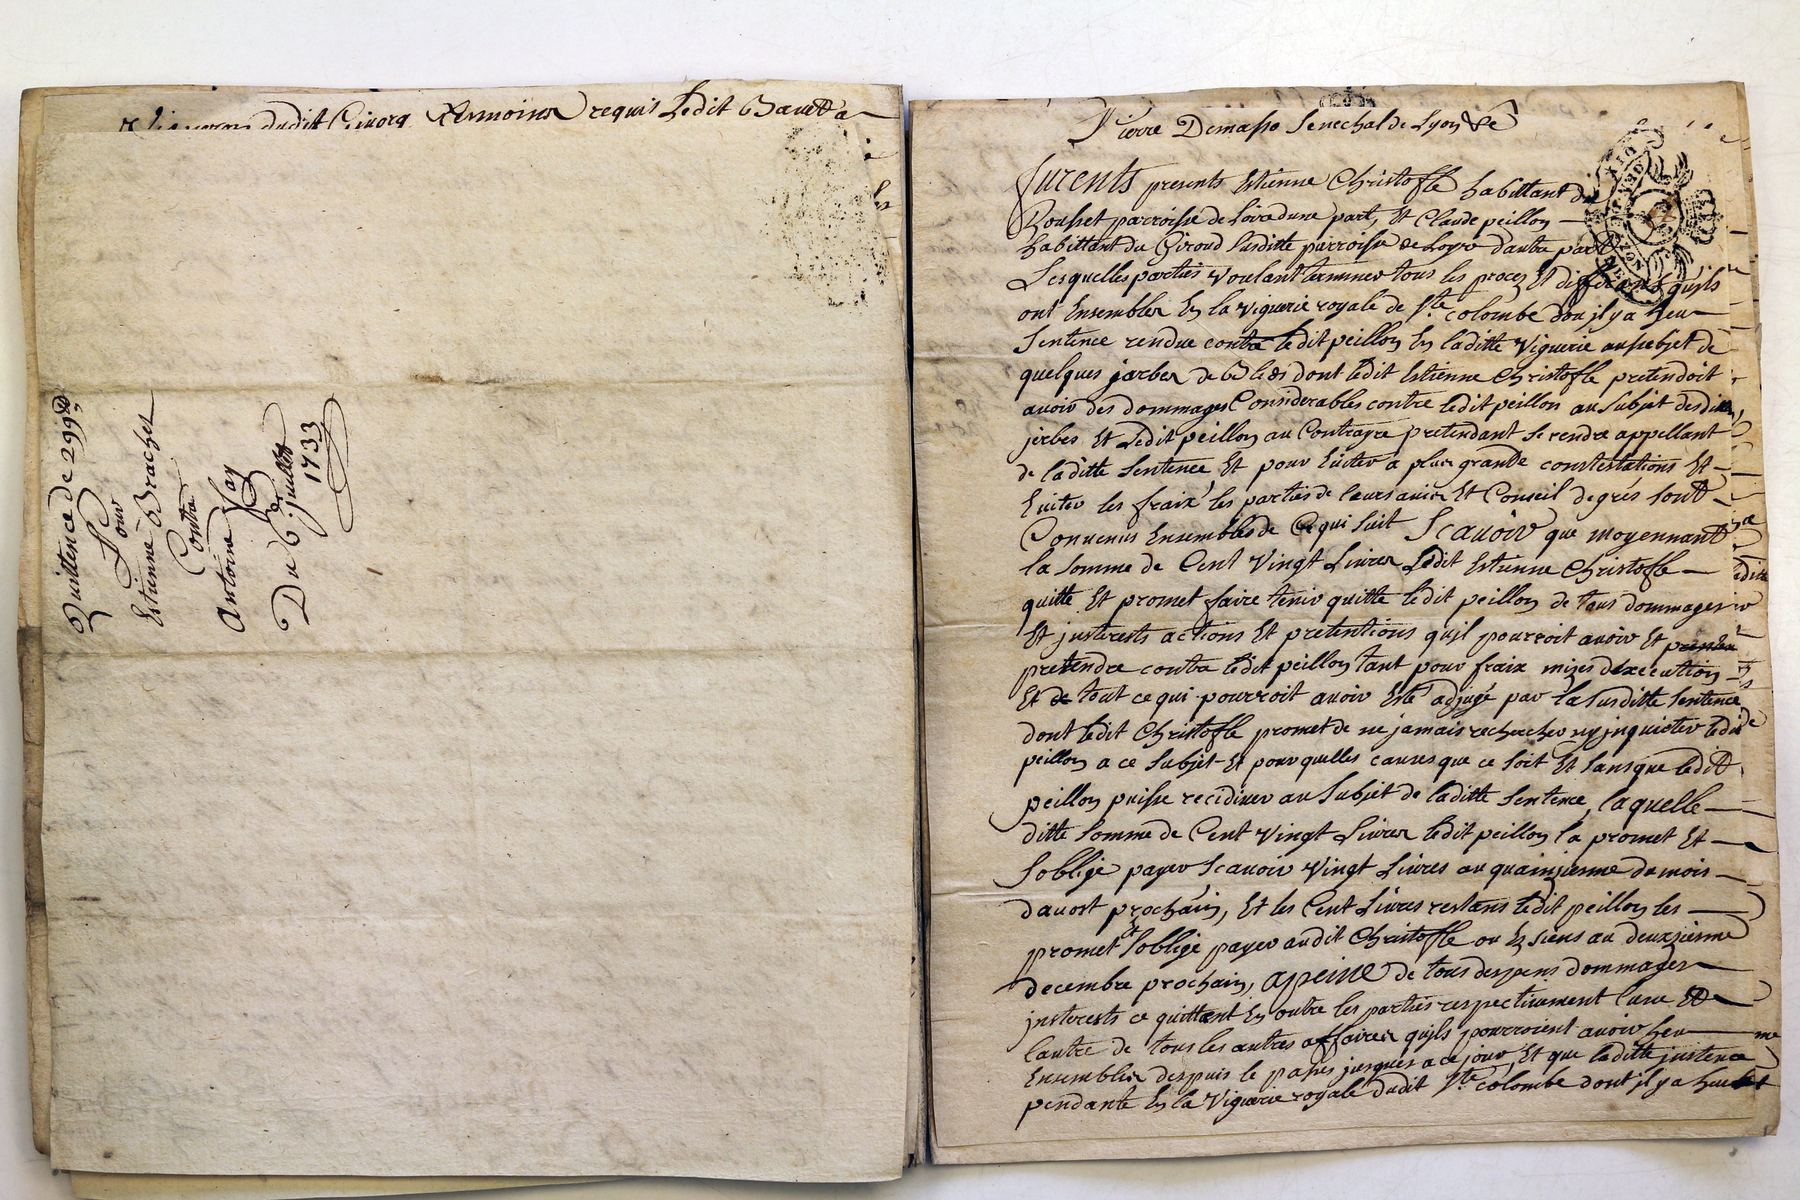 dudit Givorq temoins requis ledit Bavetta
Quittence de 299ᵗᵗ
Pour
Estienne Brachet
Contre
Antoine Fay
Du 6 juillet
1733
Pierre Demasso Senechal de Lyon &c
furents presents Estienne Christofle habittant du
Rousset parroisse de Loire dune part, Et Claude peillon
habittant du Giroud susditte parroisse de Loyre dautre part
Lesquelles parties voulant terminer tous les procez Et differans quils
ont Ensembles En la viguerie royale de Ste colombe dou il y a heu
Sentence rendue contre ledit peillon En laditte viguerie au subjet de
quelques jarbes de Bled dont ledit Estienne Christofle pretendoit
avoir des dommages Considerables contre ledit peillon au Subjet desdittes
jerbes Et Ledit peillon au Contrayre pretendant se rendre appellant
de laditte Sentence Et pour Eviter a plus grande constestations Et
Eviter les fraix les parties de leurs avis Et Conseil de grés sont
Convenus Ensembles de Ce qui suit Scavoir que moyennant
la somme de Cent Vingt Livres Ledit Estienne Christofle
quitte Et promet faire tenir quitte ledit peillon de tous dommages
Et jnterests actions Et pretentions quil pourroit avoir Et
pretendre contre ledit peillon tant pour fraix mizes dexecution
Et de tout ce qui pourroit avoir Esté adjugé par la susditte Sentence
dont ledit Christofle promet de ne jamais rechercher ny jnquieter ledit
peillon a ce Subjet Et pour quelles causes que ce soit Et sans que ledit
peillon puisse recidiver au Subjet de laditte Sentence, laquelle
ditte somme de Cent Vingt Livres ledit peillon la promet Et
soblige payer Scavoir Vingt Livres au quainzieme du mois
davost prochain, Et les Cent Livres restans ledit peillon les
promet et soblige payer audit Christofle ou Es siens au deuxzieme
decembre prochain, apeine de tous despens dommages
jnterests ce quittant En outre les parties respectivement lune Et
lautre de tous les autres affaires quils pourroient avoir heu
Ensembles despuis le passé jusques a ce jour, Et que laditte jnstence
pendante En la Viguerie royale dudit Ste colombe dont il y a heu